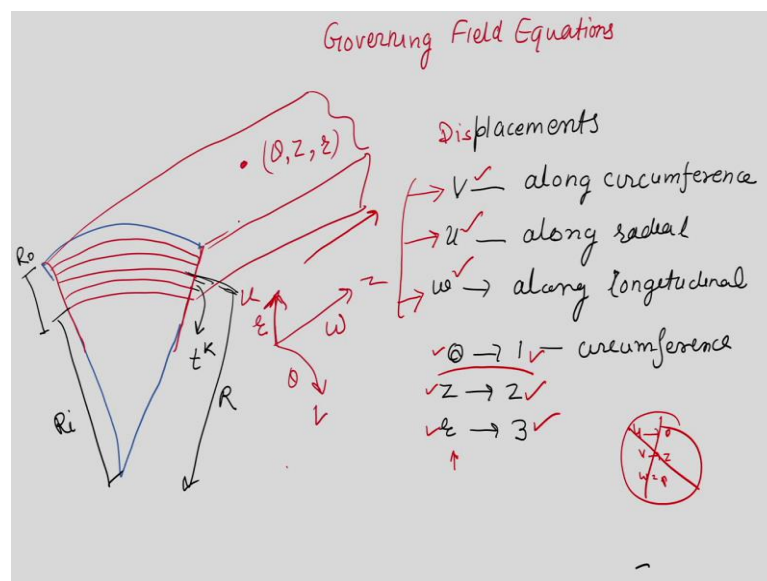 Governing Field Equations
• (θ, z, r)
Displacements
→ V — along circumference
→ u — along radial
→ w → along longitudinal
θ → 1 — circumference
z → 2
r → 3
Ro
Ri
R
t^k
u
r
z
w
θ
V
u → θ
V → z